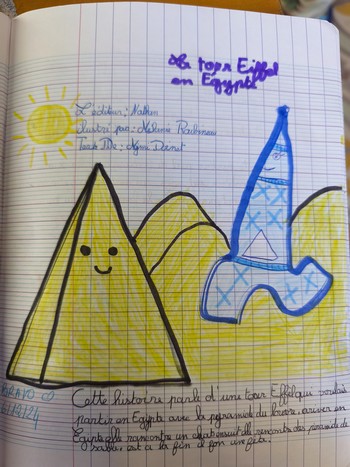 La tour Eiffel
en Egypte
L'éditeur : Nathan
Illustré par : Mélanie
Texte De :
BRAVO
Cette histoire parle d'une tour Eiffel qui voulait
partir en Egypte avec la pyramide du louvre, arriver en
Egypte elle rencontre un chat ensuit elle rencontre des pyramide de
sable, est a la fin il font un fête.